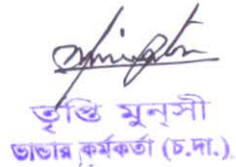 তৃপ্তি মুন্সী
ভান্ডার কর্মকর্তা (চ.দা.)